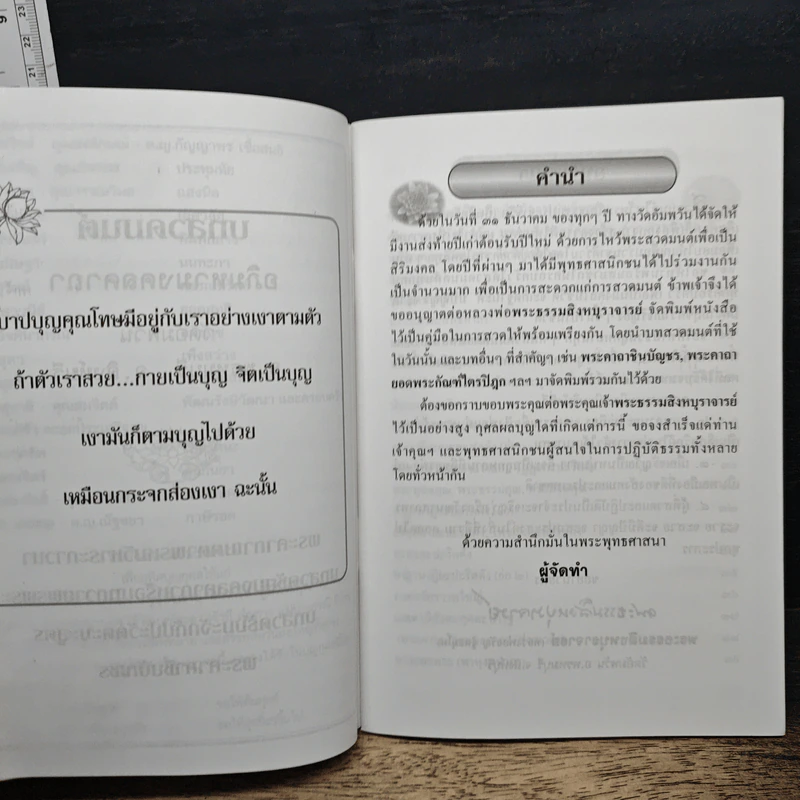 23
22
21
บาปบุญคุณโทษมีอยู่กับเราอย่างเงาตามตัว
ถ้าตัวเราสวย...กายเป็นบุญ จิตเป็นบุญ
เงามันก็ตามบุญไปด้วย
เหมือนกระจกส่องเงา ฉะนั้น
คำนำ
ด้วยในวันที่ ๓๑ ธันวาคม ของทุกๆ ปี ทางวัดอัมพวันได้จัดให้
มีงานส่งท้ายปีเก่าต้อนรับปีใหม่ ด้วยการไหว้พระสวดมนต์เพื่อเป็น
สิริมงคล โดยปีที่ผ่านๆ มาได้มีพุทธศาสนิกชนได้ไปร่วมงานกัน
เป็นจำนวนมาก เพื่อเป็นการสะดวกแก่การสวดมนต์ ข้าพเจ้าจึงได้
ขออนุญาตต่อหลวงพ่อพระธรรมสิงหบุราจารย์ จัดพิมพ์หนังสือ
ไว้เป็นคู่มือในการสวดให้พร้อมเพรียงกัน โดยนำบทสวดมนต์ที่ใช้
ในวันนั้น และบทอื่นๆ ที่สำคัญๆ เช่น พระคาถาชินบัญชร, พระคาถา
ยอดพระกัณฑ์ไตรปิฎก ฯลฯ มาจัดพิมพ์รวมกันไว้ด้วย
ต้องขอกราบขอบพระคุณต่อพระคุณเจ้าพระธรรมสิงหบุราจารย์
ไว้เป็นอย่างสูง กุศลผลบุญใดที่เกิดแต่การนี้ ขอจงสำเร็จแด่ท่าน
เจ้าคุณฯ และพุทธศาสนิกชนผู้สนใจในการปฏิบัติธรรมทั้งหลาย
โดยทั่วหน้ากัน
ด้วยความสำนึกมั่นในพระพุทธศาสนา
ผู้จัดทำ